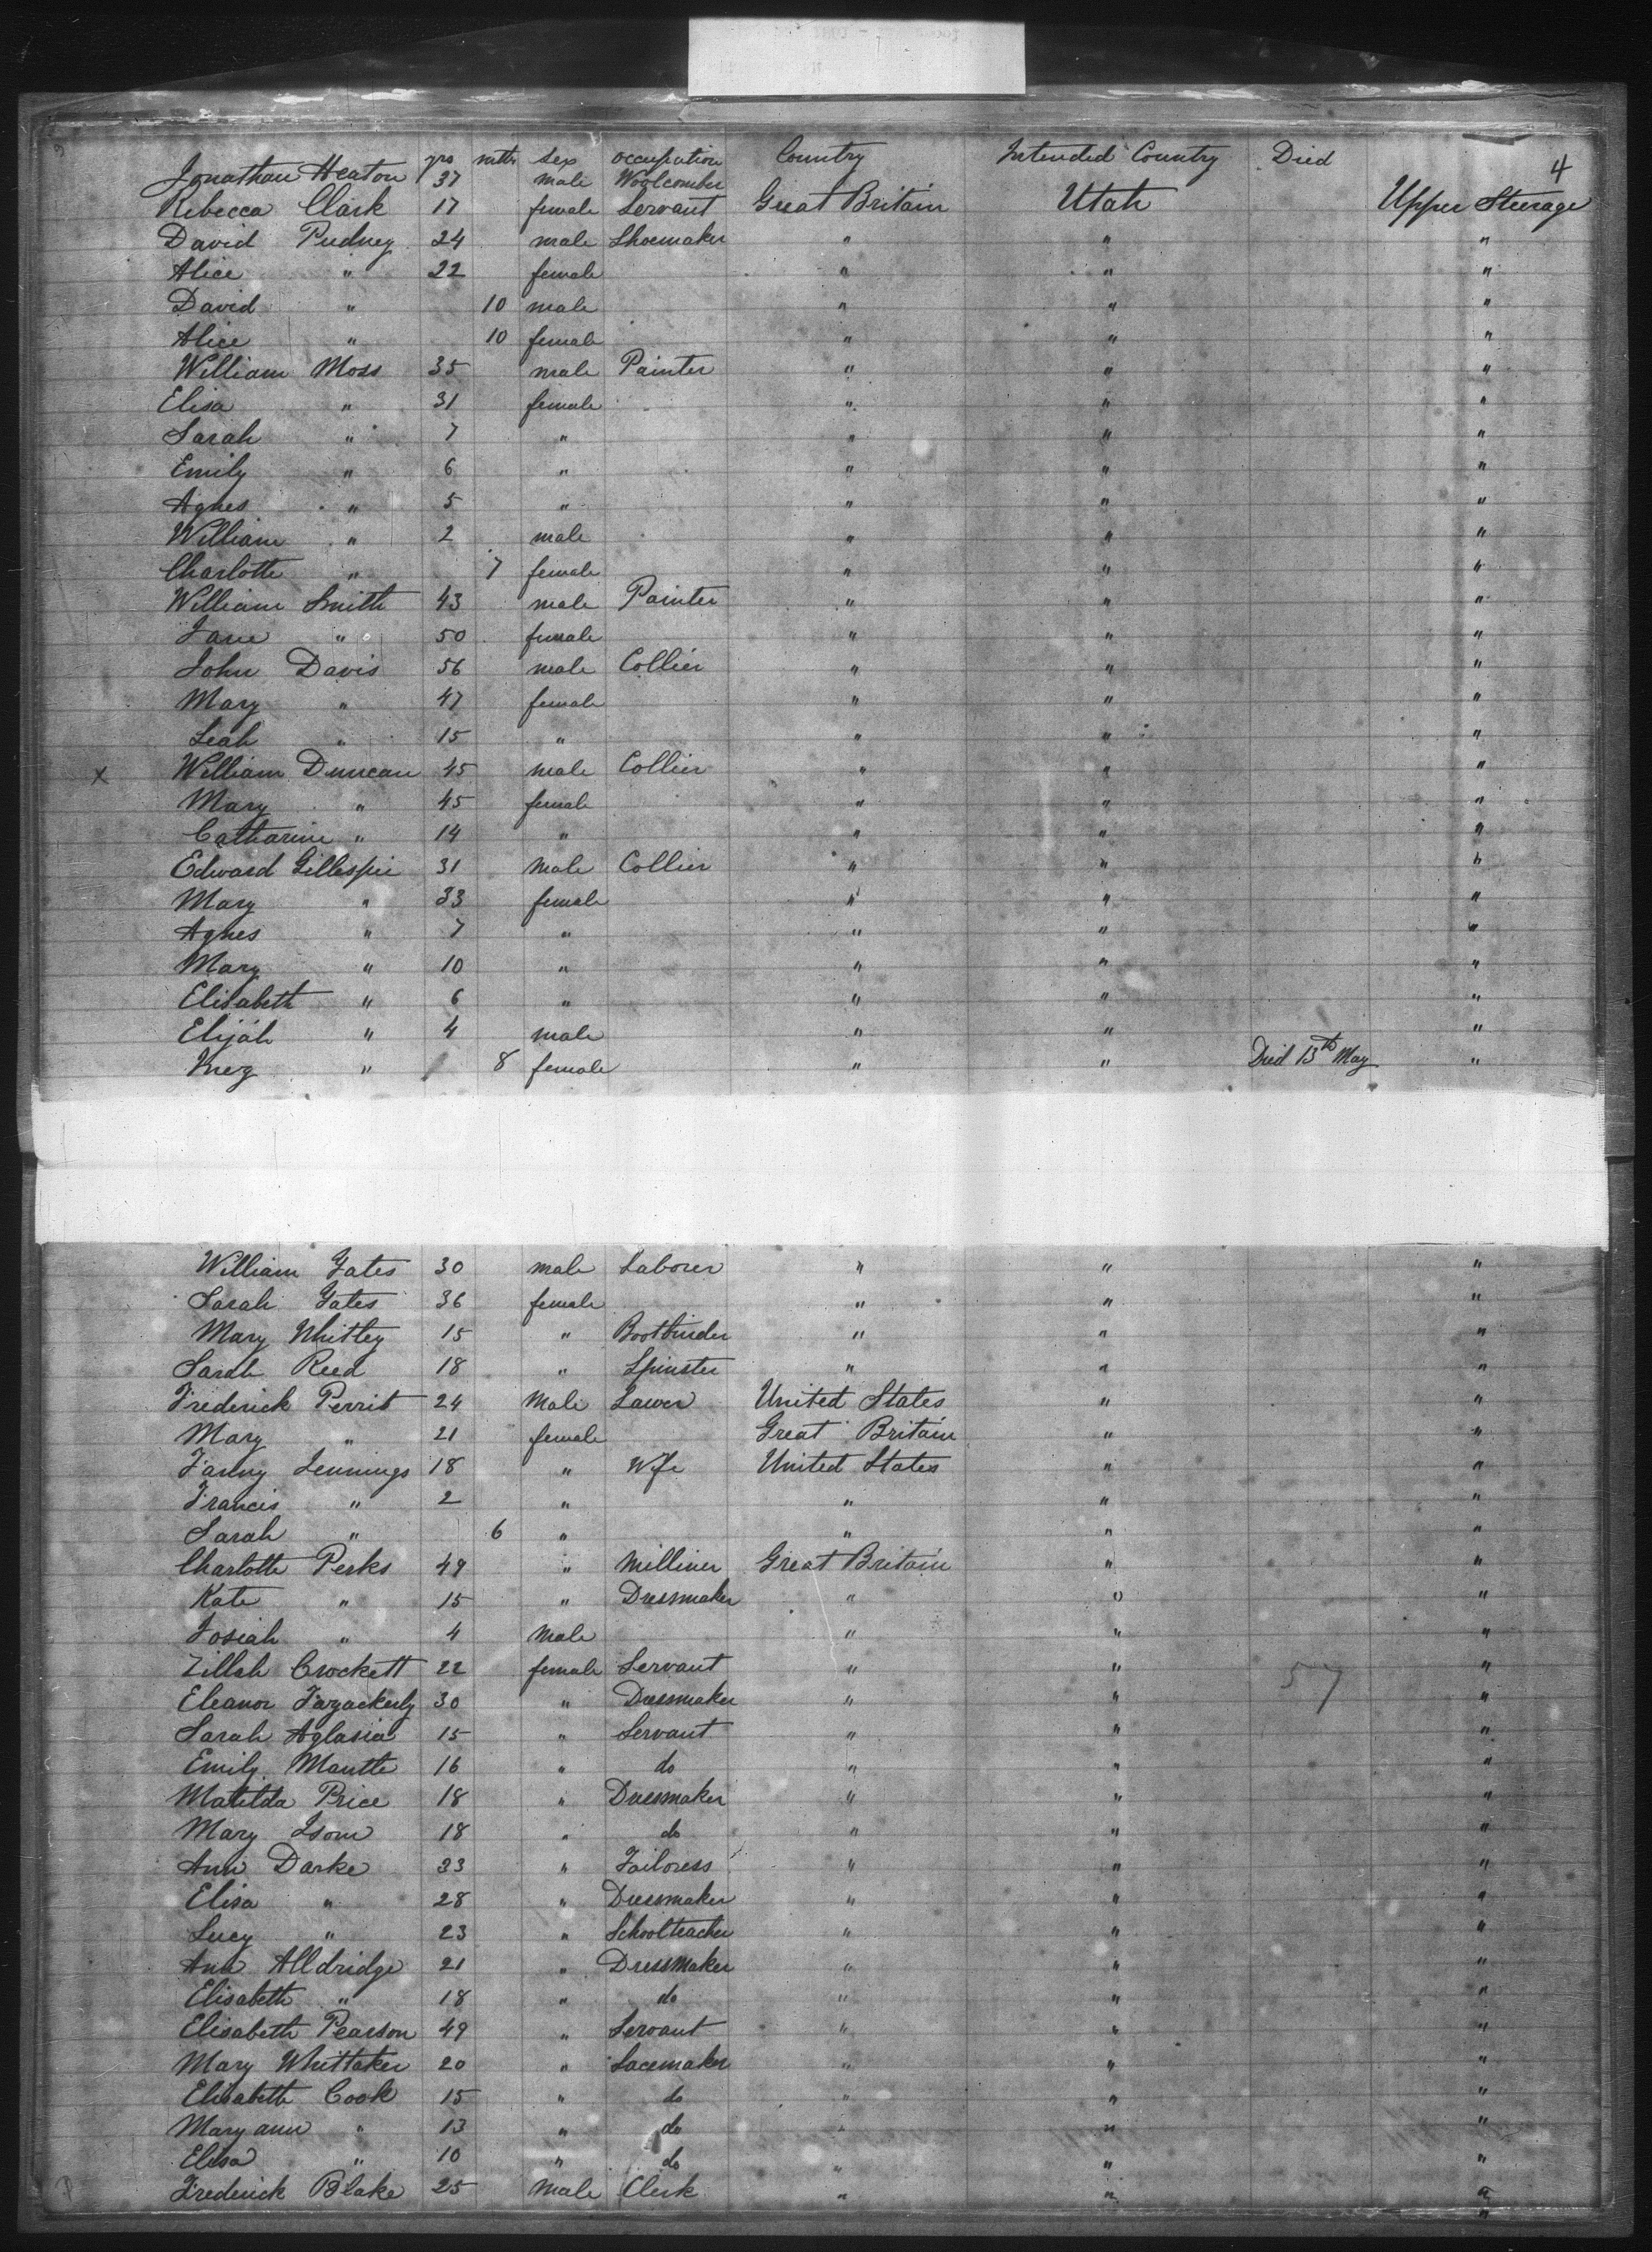 yrs mths Sex Occupation Country Intended Country Died 4
Jonathan Heaton 37 male Woolcomber
Rebecca Clark 17 female Servant Great Britain Utah Upper Steerage
David Pudney 24 male Shoemaker " " "
Alice " 22 female " " "
David " 10 male " " "
Alice " 10 female " " "
William Moss 35 male Painter " " "
Elisa " 31 female " " "
Sarah " 7 " " " "
Emily " 6 " " " "
Agnes " 5 " " " "
William " 2 male " " "
Charlotte " 7 female " " "
William Smith 43 male Painter " " "
Jane " 50 female " " "
John Davis 56 male Collier " " "
Mary " 47 female " " "
Leah " 15 " " " "
x William Duncan 45 male Collier " " "
Mary " 45 female " " "
Catharine " 14 " " " "
Edward Gillespie 31 Male Collier " " "
Mary " 33 female " " "
Agnes " 7 " " " "
Mary " 10 " " " "
Elisabeth " 6 " " " "
Elijah " 4 male " " "
Inez " 8 female " " Died 13th May "
William Yates 30 male Laborer " " "
Sarah Yates 36 female " " "
Mary Whitley 15 " Bootbinder " " "
Sarah Reed 18 " Spinster " " "
Frederick Perrit 24 Male Lawer United States " "
Mary " 21 female Great Britain " "
Fanny Jennings 18 " Wife United States " "
Francis " 2 " " " "
Sarah " 6 " " " "
Charlotte Perks 49 " Milliner Great Britain " "
Kate " 15 " Dressmaker " " "
Josiah " 4 Male " " "
Zillah Crockett 22 female Servant " " "
Eleanor Fazackerly 30 " Dressmaker " " 57 "
Sarah Aglasia 15 " Servant " " "
Emily Mantle 16 " do " " "
Matilda Price 18 " Dressmaker " " "
Mary Isom 18 " do " " "
Ann Darke 33 " Tailoress " " "
Elisa " 28 " Dressmaker " " "
Lucy " 23 " Schoolteacher " " "
Ann Alldridge 21 " Dressmaker " " "
Elisabeth " 18 " do " " "
Elisabeth Pearson 49 " Servant " " "
Mary Whittaker 20 " Lacemaker " " "
Elisabeth Cook 15 " do " " "
Mary ann " 13 " do " " "
Elisa " 10 " do " " "
Frederick Blake 25 Male Clerk " " "
"